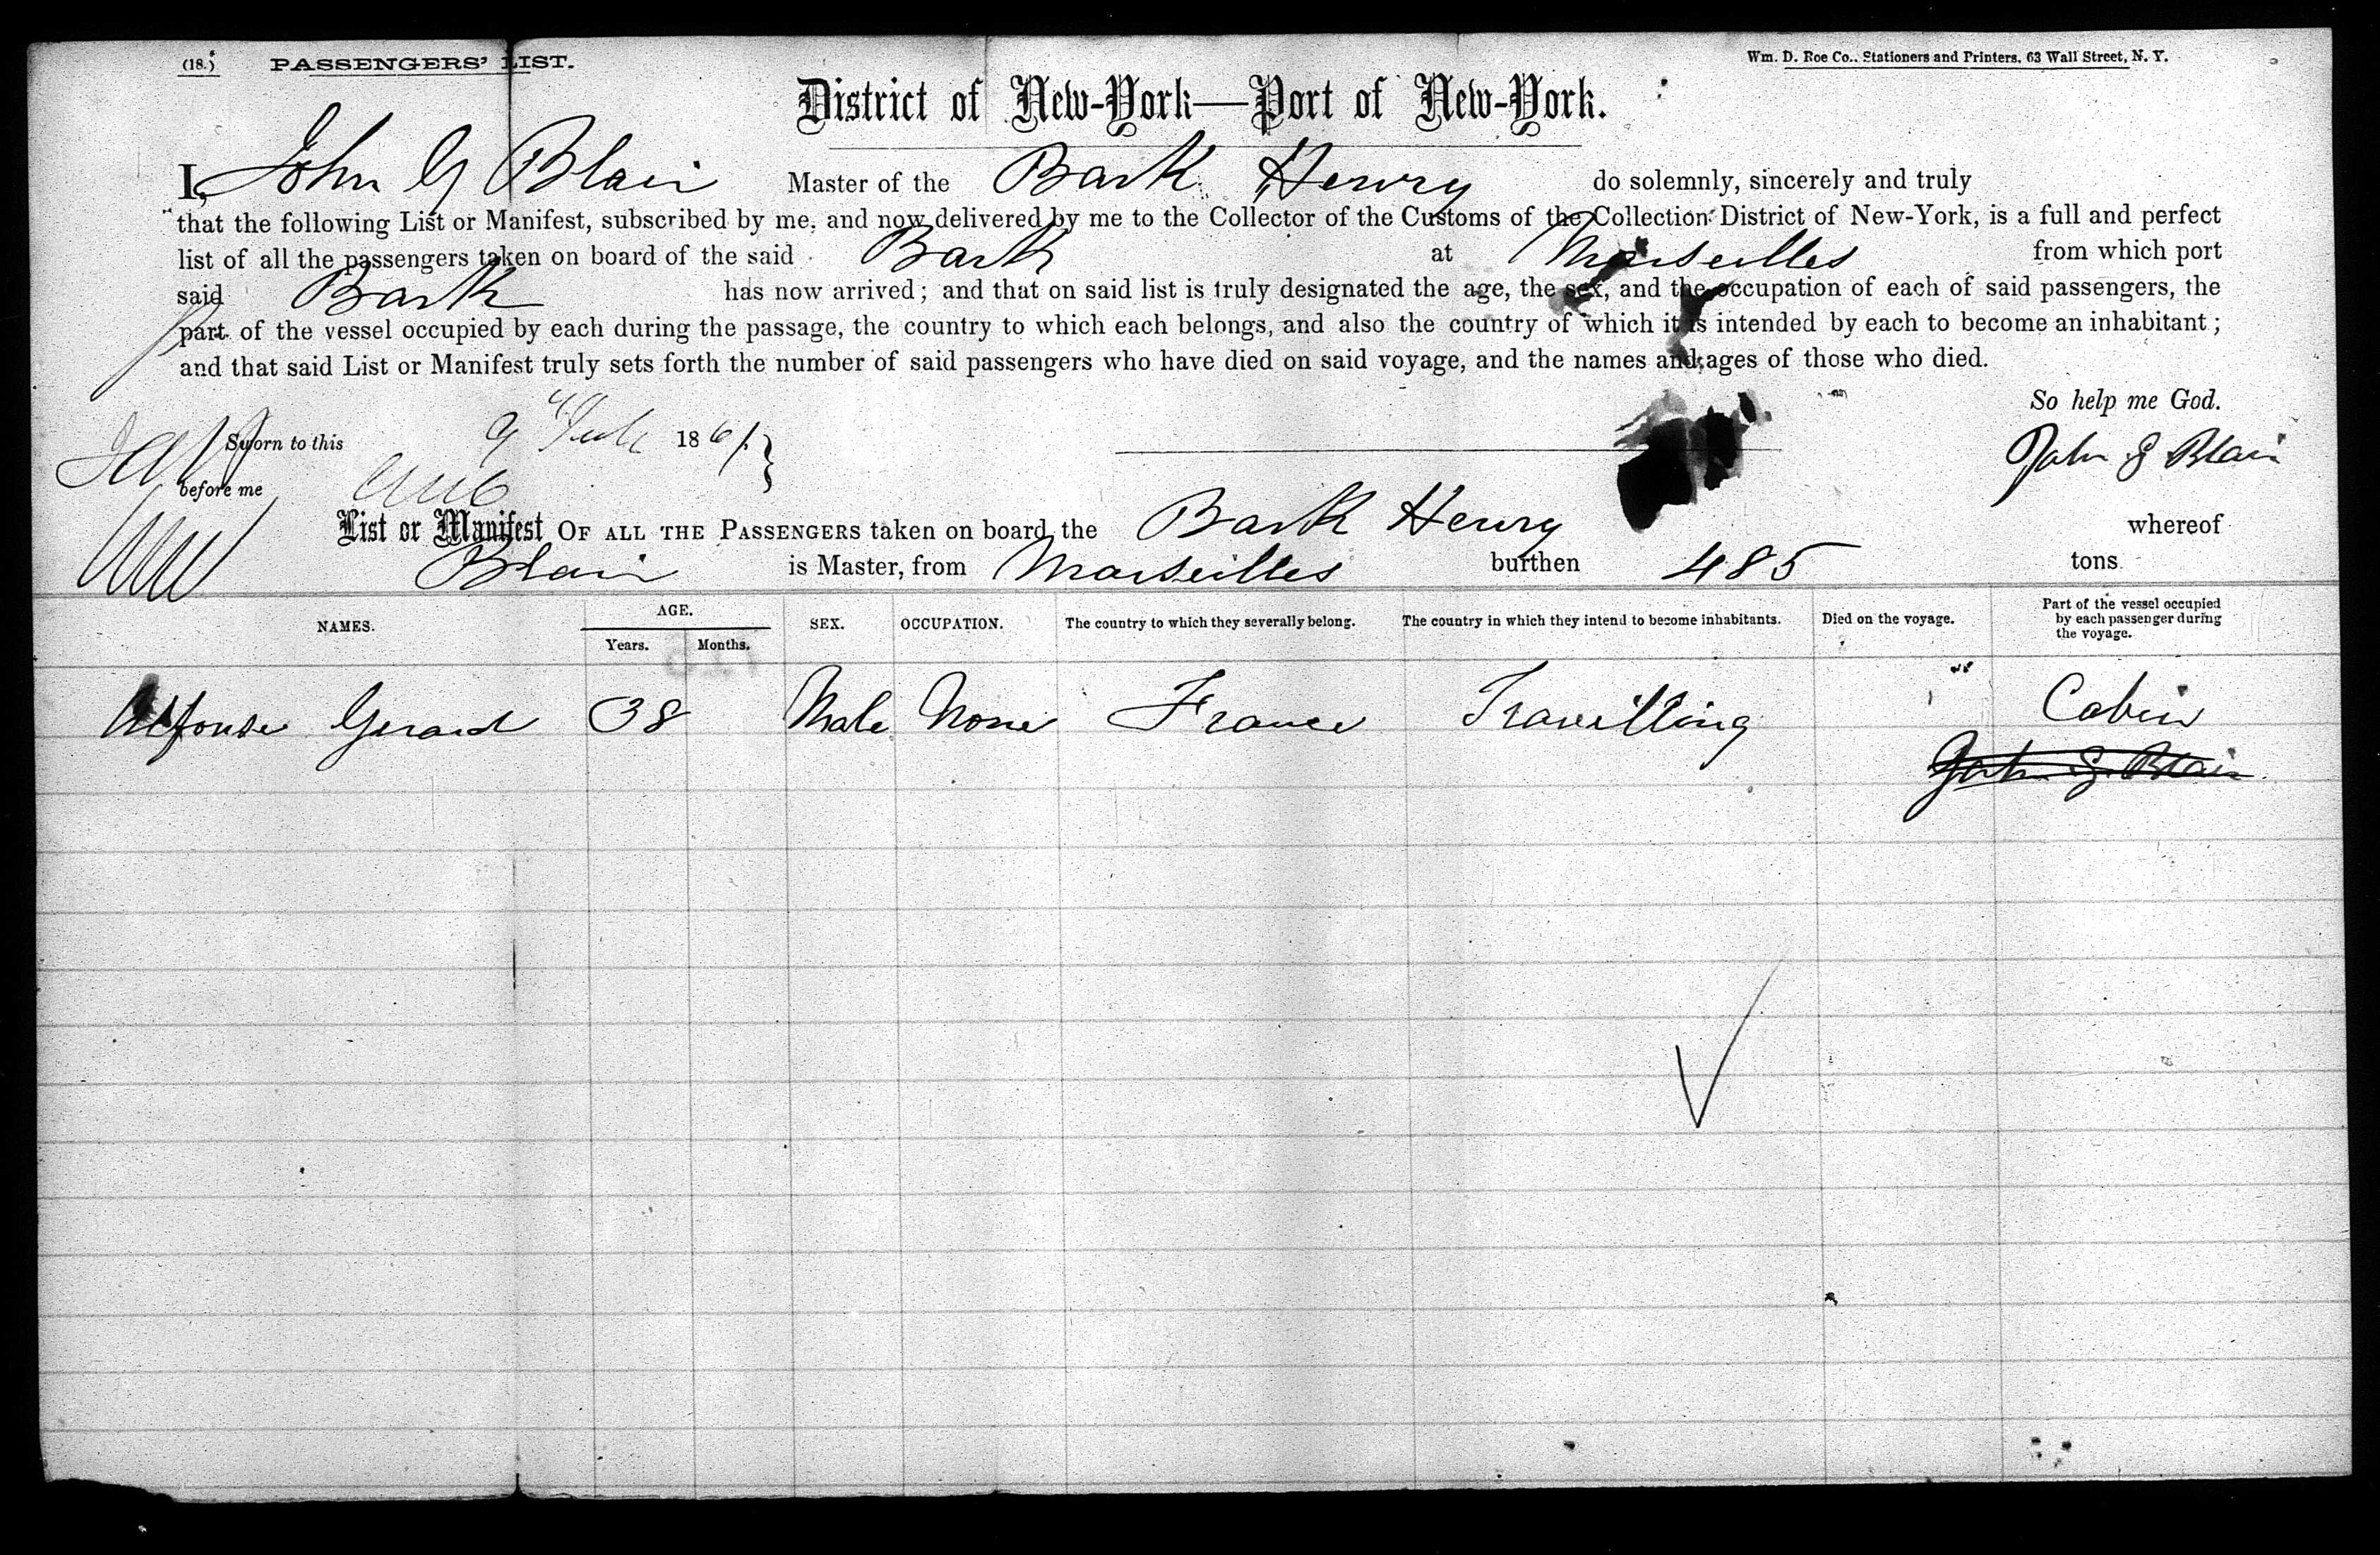 (18.) PASSENGERS' LIST.
Wm. D. Roe Co., Stationers and Printers, 63 Wall Street, N. Y.
District of New-York—Port of New-York.
I, John G Blair Master of the Bark Henry do solemnly, sincerely and truly
that the following List or Manifest, subscribed by me, and now delivered by me to the Collector of the Customs of the Collection District of New-York, is a full and perfect
list of all the passengers taken on board of the said Bark at Marseilles from which port
said Bark has now arrived; and that on said list is truly designated the age, the sex, and the occupation of each of said passengers, the
part of the vessel occupied by each during the passage, the country to which each belongs, and also the country of which it is intended by each to become an inhabitant;
and that said List or Manifest truly sets forth the number of said passengers who have died on said voyage, and the names and ages of those who died.
So help me God.
Sworn to this 9 1861
John G Blair
before me
List or Manifest OF ALL THE PASSENGERS taken on board the Bark Henry whereof
Blair is Master, from Marseilles burthen 485 tons
NAMES. AGE. Years. Months. SEX. OCCUPATION. The country to which they severally belong. The country in which they intend to become inhabitants. Died on the voyage. Part of the vessel occupied by each passenger during the voyage.
Alfonse Gerard 38 Male None France Travilling Cabin
John G Blair